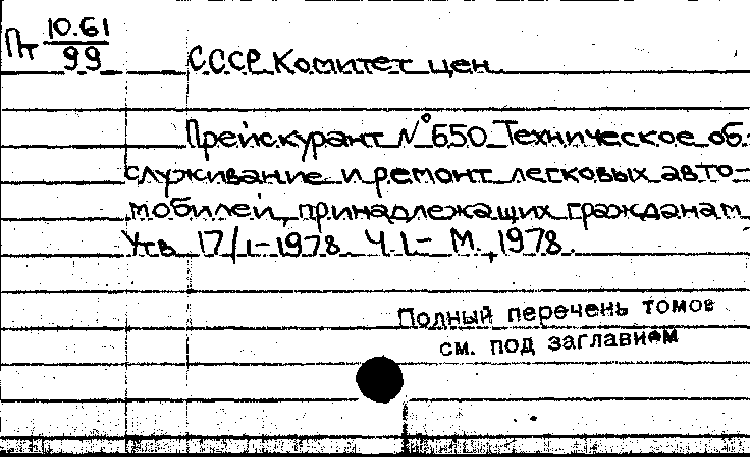 Пт 10.61
99
СССР. Комитет цен.
Прейскурант № Б50. Техническое об-
служивание и ремонт легковых авто-
мобилей, принадлежащих гражданам.
Утв. 17/I-1978. Ч. I - М., 1978.
Полный перечень томов
см. под заглавием